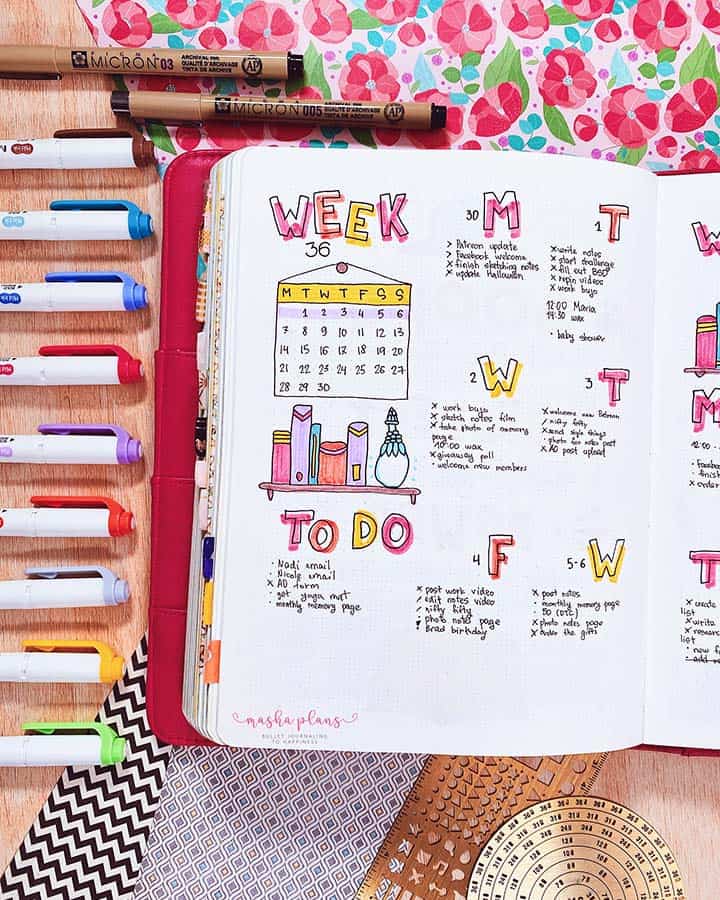 MICRON 03
ARCHIVAL PEN
QUALITÉ D'ARCHIVE
TINTA DE ARCHIVE
AP
MICRON 005
ARCHIVAL PEN
QUALITÉ D'ARCHIVE
TINTA DE ARCHIVE
AP
WEEK
36
M T W T F S S
1 2 3 4 5 6
7 8 9 10 11 12 13
14 15 16 17 18 19 20
21 22 23 24 25 26 27
28 29 30
TO DO
· Nadi email
· Nicole email
x AD form
· get yoga mat
· monthly memory page
30 M
> Patreon update
> Facebook welcome
x finish sketching notes
x update Halloween
1 T
x write notes
x start challenge
x fill out BSO
x repin videos
x work bujo
12:00 Maria
14:30 wax
· baby shower
2 W
x work bujo
x sketch notes film
x take photo of memory
page
10:00 wax
x giveaway poll
· welcome new members
3 T
x welcome new Patreon
/ nifty fifty
x send style things
· photo for notes post
x AD post upload
4 F
x post work video
/ edit notes video
/ nifty fifty
! photo notes page
! Brad birthday
5-6 W
x post notes
· monthly memory page
x photo notes page
x order the gifts
masha plans
BULLET JOURNALING
TO HAPPINESS
W
M
· Facebo
· finish
x order
T
x create
list
x write
x resear
list
· new f
· add